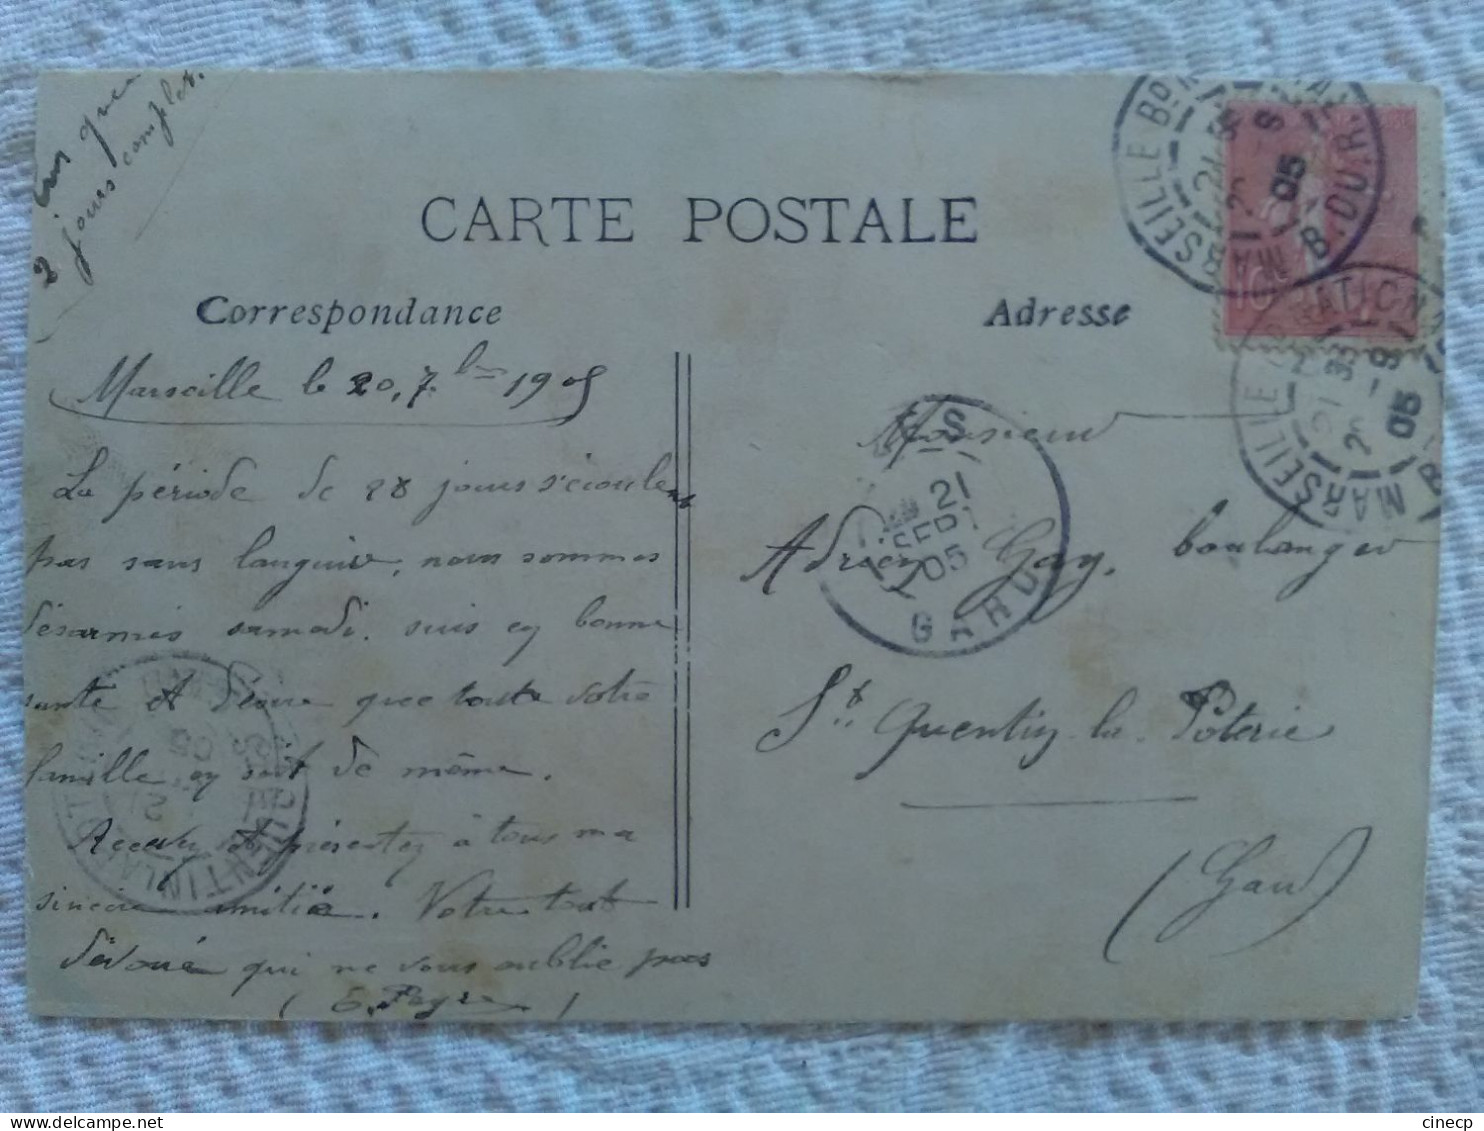 que
2 jours complet.
CARTE POSTALE
Correspondance
Adresse
Marseille le 20, 7bre 1905
La période de 28 jours s'écoule
pas sans languir, nous sommes
désarmés samedi. suis en bonne
santé et désire que toute votre
famille en soit de même.
Recevez et présentez à tous ma
sincère amitié. Votre tout
dévoué qui ne vous oublie pas
(E. Peyre)
Monsieur
Adrien Gay, boulanger
St Quentin la Poterie
(Gard)
MARSEILLE
B. DU R.
05
10
MARSEILLE
05
21
SEPT
05
GARD
QUENTIN LA POT
05
cinecp